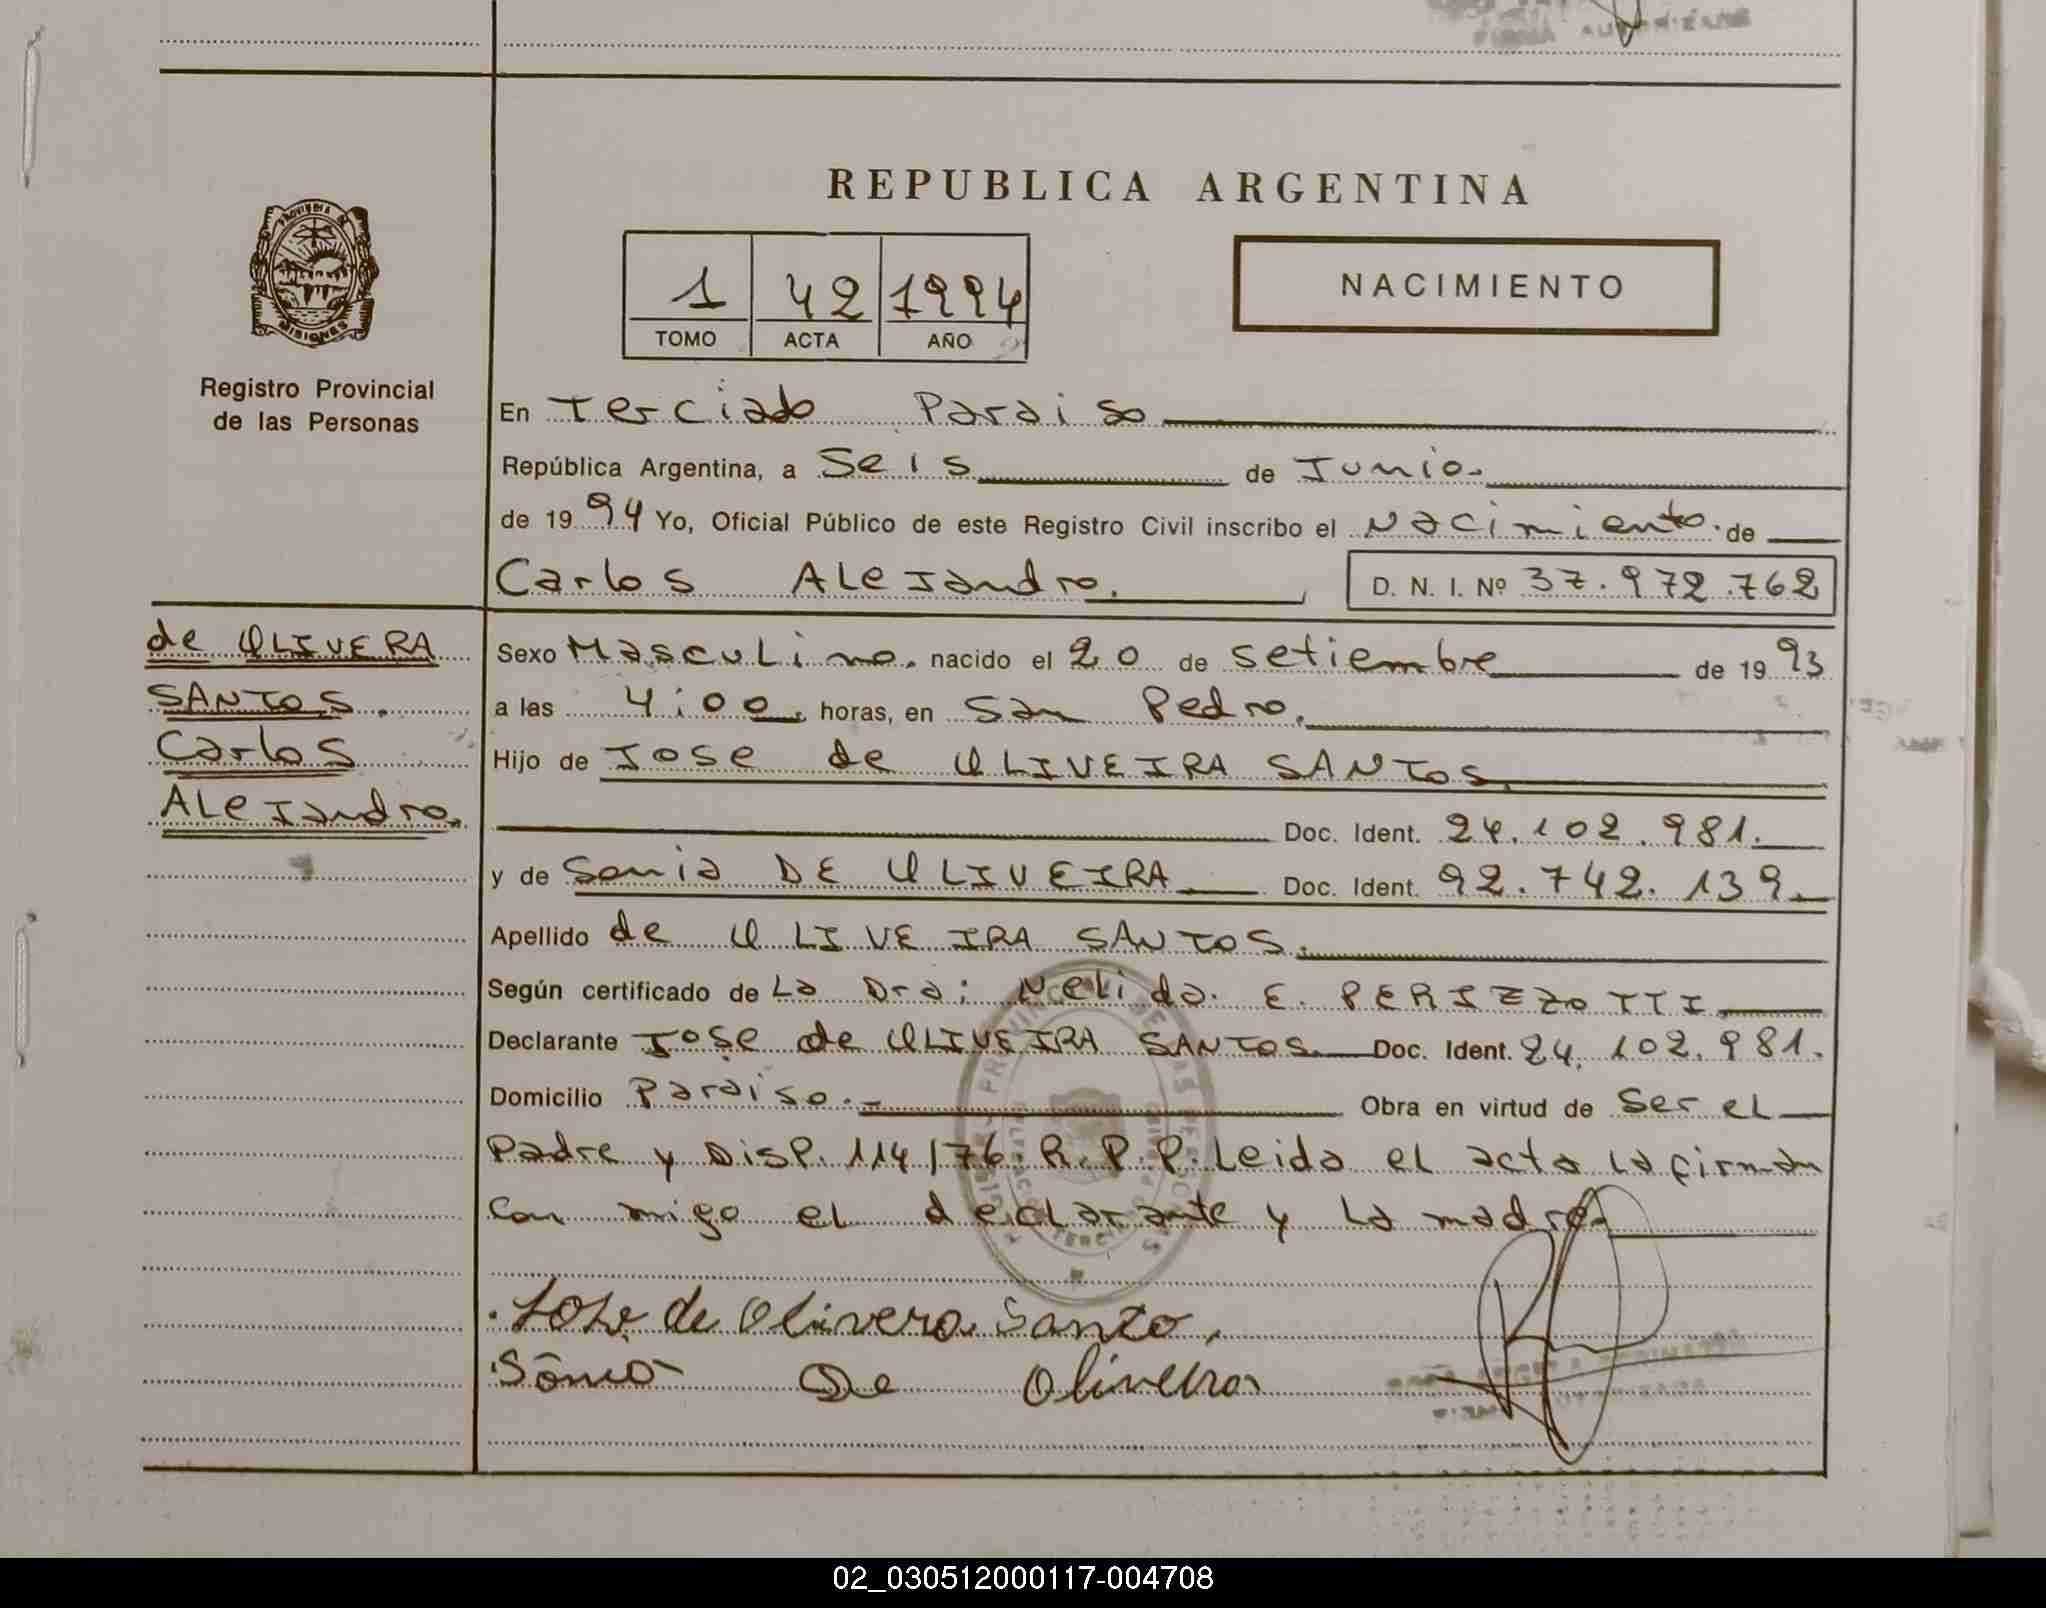 REPUBLICA ARGENTINA
PROVINCIA DE
MISIONES
Registro Provincial
de las Personas
1 42 1994
TOMO ACTA AÑO
NACIMIENTO
En Terciado Paraiso
República Argentina, a Seis de Junio.
de 1994 Yo, Oficial Público de este Registro Civil inscribo el Nacimiento. de
Carlos Alejandro. D. N. I. Nº 37.972.762
de OLIVERA
SANTOS.
Carlos
Alejandro.
Sexo Masculino. nacido el 20 de Setiembre de 1993
a las 4:00. horas, en San Pedro.
Hijo de Jose de OLIVEIRA SANTOS.
Doc. Ident. 24.102.981.
y de Sonia DE OLIVEIRA Doc. Ident. 92.742.139.
Apellido de OLIVEIRA SANTOS.
Según certificado de La Dra: Nelida. E. PERIZZOTTI
Declarante Jose de OLIVEIRA SANTOS. Doc. Ident. 24.102.981.
Domicilio Paraiso.- Obra en virtud de Ser el
Padre y Disp. 114/76. R.P.P. Leida el acta la firman
Con migo el declarante y la madre.
Jose de Olivera Santo.
Sônia De Oliveira
02_030512000117-004708